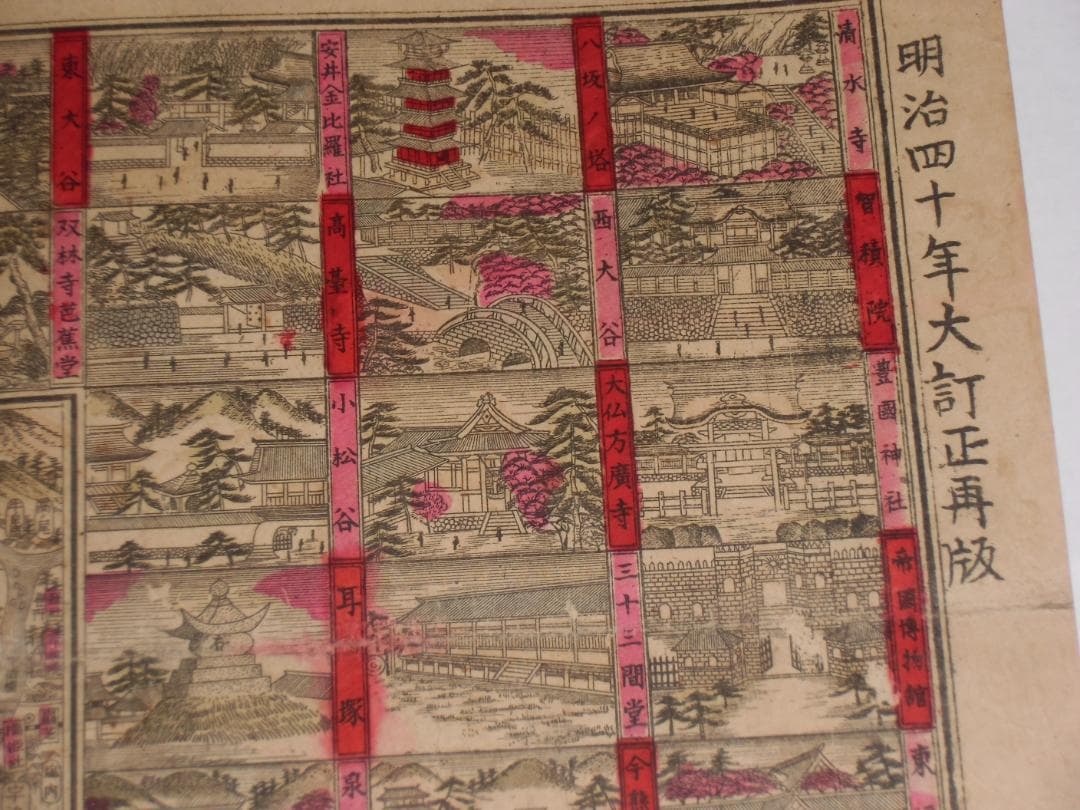 明治四十年大訂正再版
清水寺
八坂ノ塔
安井金比羅社
東大谷
智積院
西大谷
高臺寺
双林寺芭蕉堂
豊國神社
大仏方廣寺
小松谷
帝國博物館
三十三間堂
耳塚
東
今熊
泉